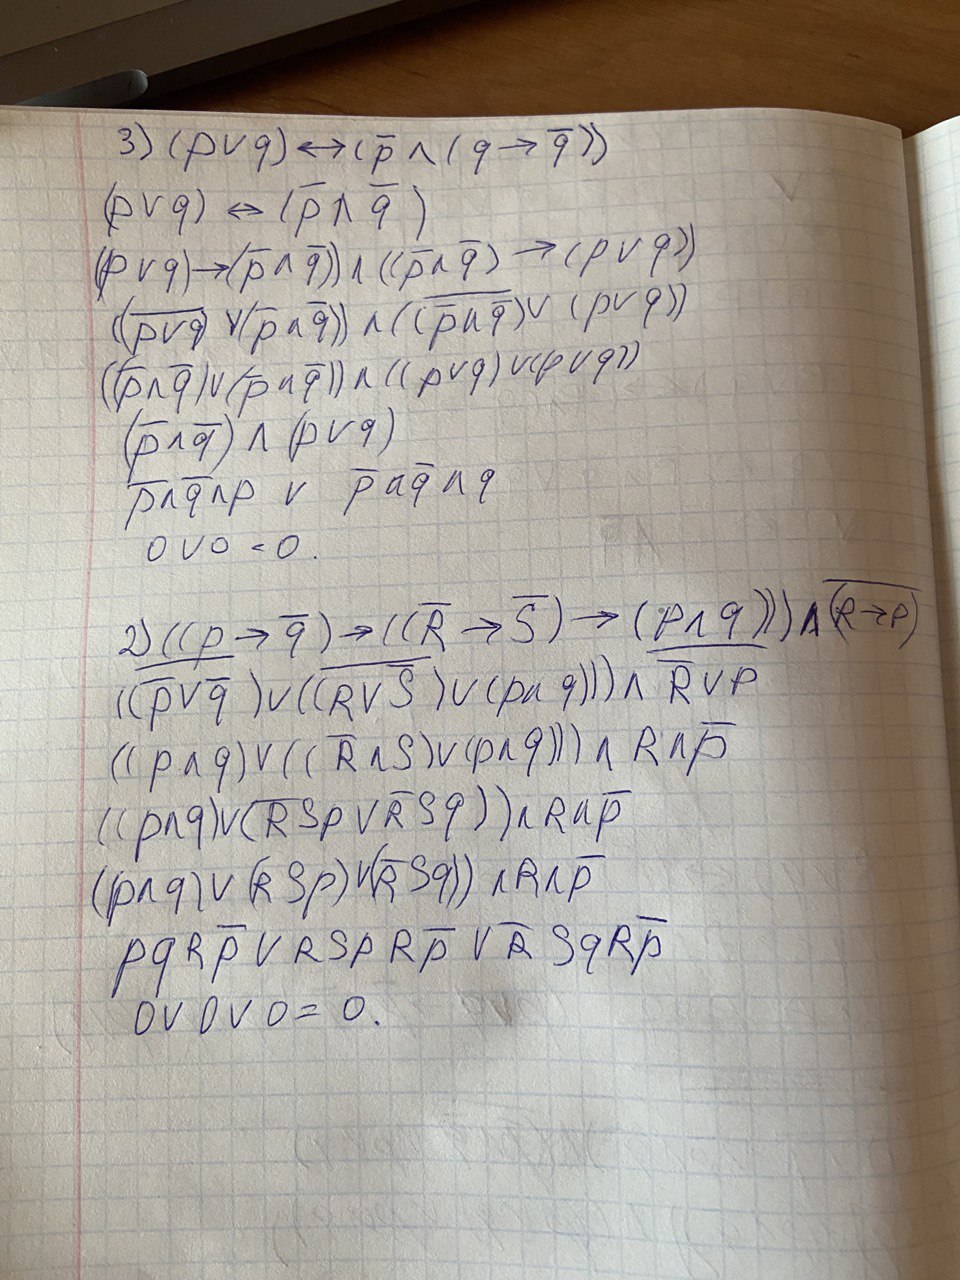 3) (p∨q)↔(p̅∧(q→q̅))
(p∨q) ↔ (p̅∧q̅)
(p∨q)→(p̅∧q̅))∧((p̅∧q̅)→(p∨q))
((p̅∨̅q̅)∨(p̅∧q̅))∧((p̅̅∧̅q̅̅)∨(p∨q))
((p̅∧q̅)∨(p̅∧q̅))∧((p∨q)∨(p∨q))
(p̅∧q̅)∧(p∨q)
p̅∧q̅∧p ∨ p̅∧q̅∧q
0∨0=0.
2) ((p→q̅)→((R̅→S̅)→(p∧q)))∧(R̅→̅P̅)
((p̅̅∨̅q̅̅)∨((R̅∨̅S̅̅)∨(p∧q)))∧R̅̅∨̅P̅
((p∧q)∨((R̅∧S)∨(p∧q)))∧R∧p̅
((p∧q)∨(R̅Sp∨R̅Sq))∧R∧p̅
(p∧q)∨(R̅Sp)∨(R̅Sq))∧R∧p̅
pqRp̅∨RSpRp̅∨R̅SqRp̅
0∨0∨0=0.